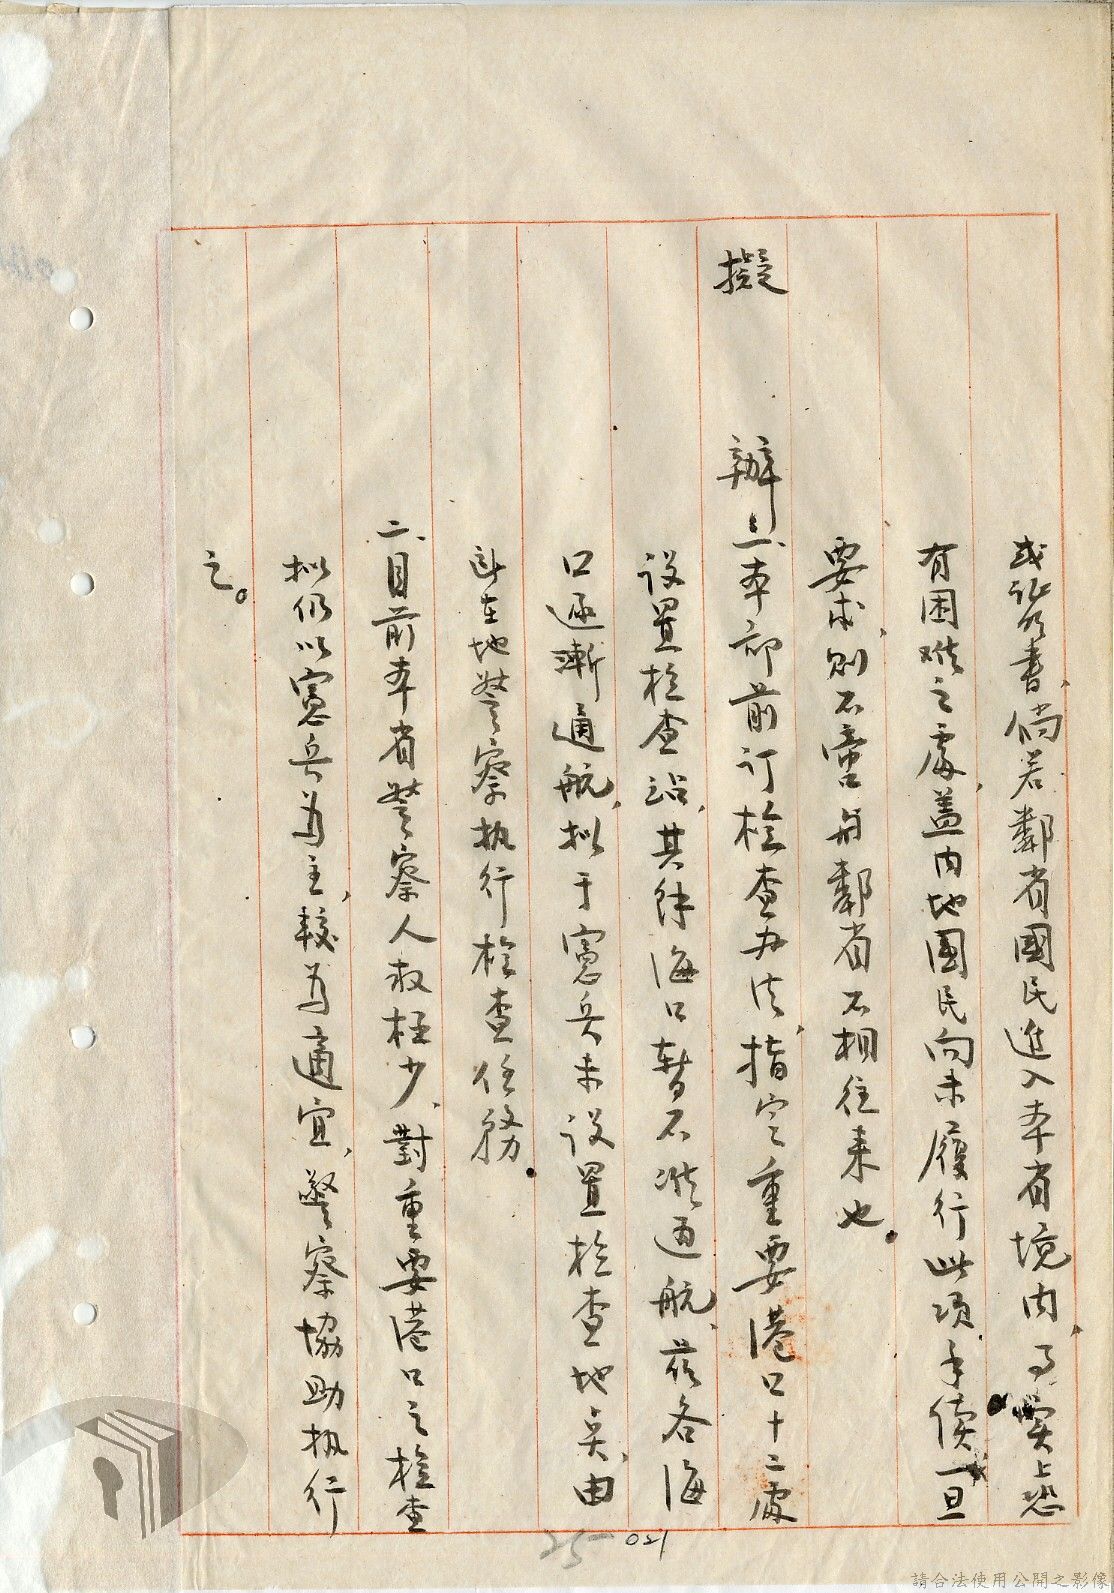 或證明書，倘若鄰省國民進入本省境內，事實上恐
有困难之處，盖内地國民向未履行此項手續，一旦
要求，则不啻與鄰省不相往来也。
擬辦 一、本部前订檢查办法，指定重要港口十二處
设置檢查站，其餘海口暂不准通航，兹各海
口逐漸通航，拟于憲兵未设置檢查地点，由
所在地警察执行檢查任務。
二、目前本省警察人数極少，對重要港口之檢查
拟仍以憲兵為主，較為適宜，警察協助执行
之。
25 021
請合法使用公開之影像